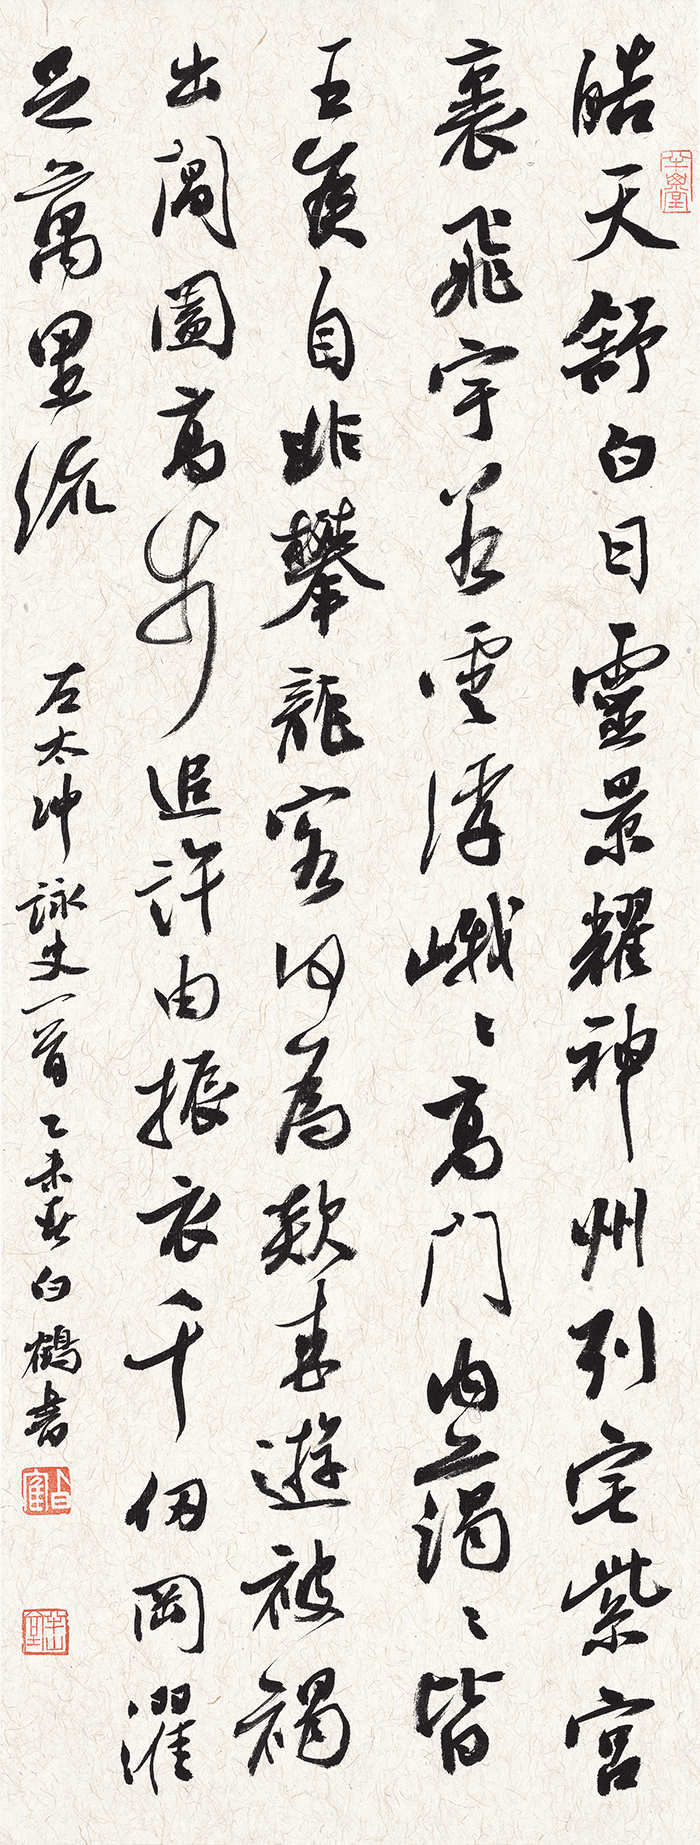 皓天舒白日靈景耀神州列宅紫宮
裏飛宇若雲浮峨〻高門內藹〻皆
王矦自非攀龍客何為欻來遊被褐
出閶闔高步追許由振衣千仞岡濯
足萬里流
左太冲詠史一首乙未春白鶴書